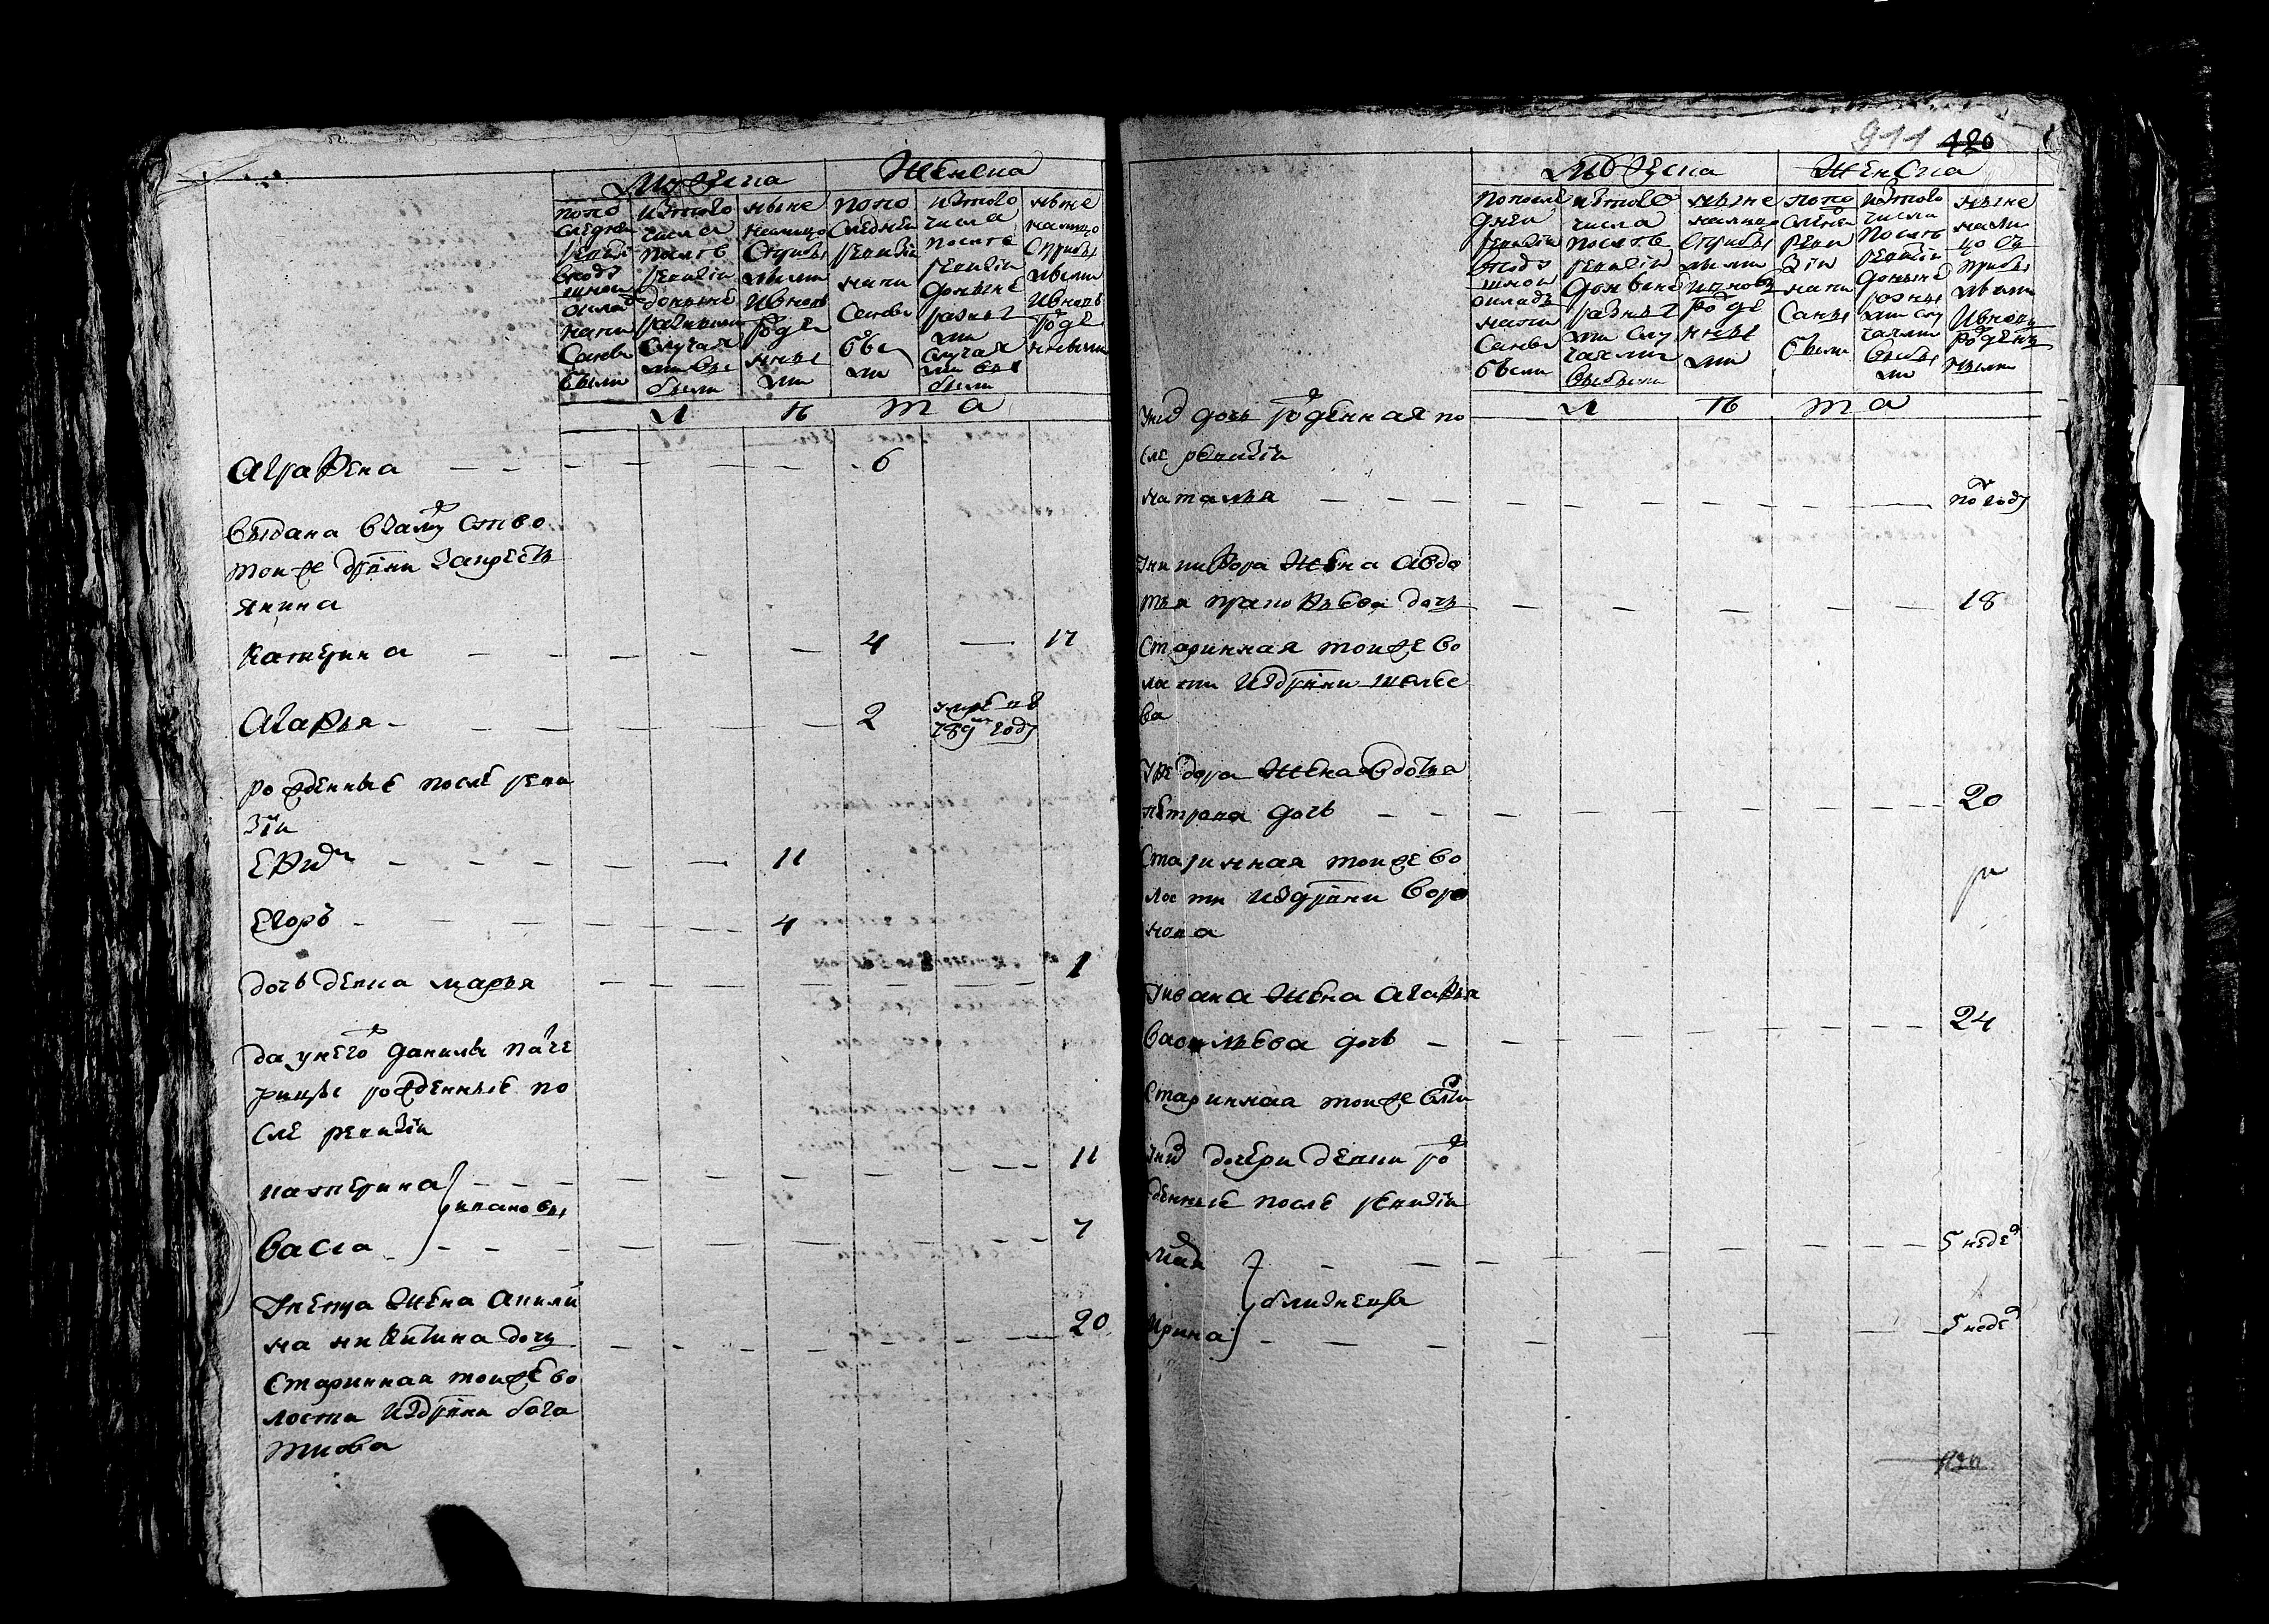 Мужеска
Женска
по по
следнеи
ревизіи
в подушном
окладе
написаны
были
из того
числа
после
ревизіи
доныне
разными
случаями
выбыли
ныне
налицо
с прибы
лыми
и вновь
рожде
нны
ми
по по
следней
ревизіи
напи
саны
бы
ли
из того
числа
после
ревизіи
доныне
разны
ми
случая
ми вы
были
ныне
налицо
с прибы
лыми
и вновь
рожде
нными
Л ѣ т а
Аграфена 6
выдана в замуство
тоиже дрвни за крестъ
янина
Катерина 4 17
Агафья 2 умре в
789м году
рожденные после реви
зіи
Ефимъ 11
Егоръ 4
дочь девка марья 1
да у него Данилы падче
рицы рожденные по
сле ревизіи
катерина 11
ивановы
васса 7
У петра жена Акили
на никитина дочь 20
старинная тоиже во
лости из дрвни бога
ткова
911 420
Мужеска
Женска
по послѣ
дней
ревизіи
в подушном
окладе
написаны
были
из того
числа
после
ревизіи
доныне
разны
ми слу
чаями
выбыли
ныне
налицо
с прибы
лыми
и вновь
рожде
нны
ми
по по
следней
реви
зіи
напи
саны
были
из того
числа
после
ревизіи
доныне
разны
ми слу
чаями
выбы
ли
ныне
нали
цо съ
прибы
лыми
и вновь
рожден
ными
Л ѣ т а
У них дочь рожденная по
сле ревизіи
наталья полгоду
У никифора жена Авдо
тья пракофьева дочь 18
Старинная тоиже во
лости из дрвни
У федора жена Авдотья
петрова дочь 20
Старинная тоиже во
лости из дрвни воро
нова
У ивана жена Агафья
васильева дочь 24
Старинная тоиже влсти
У них дочери девки рож
денные после ревизіи
5 недел
близнецы
Ирина 5 недел